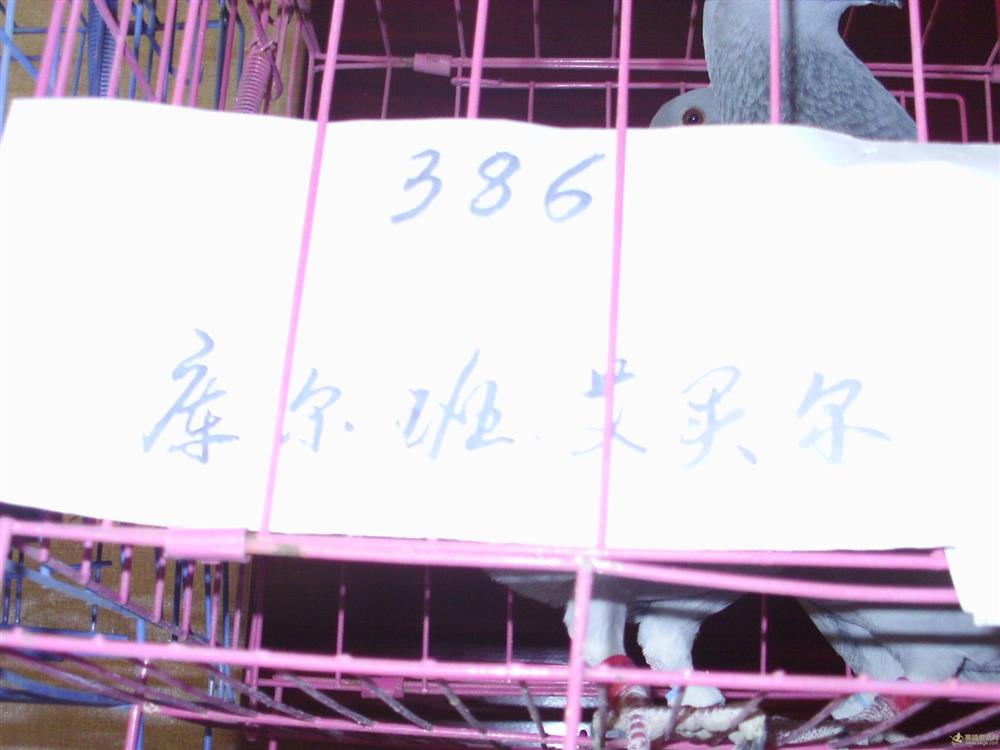 386
库尔班.艾买尔